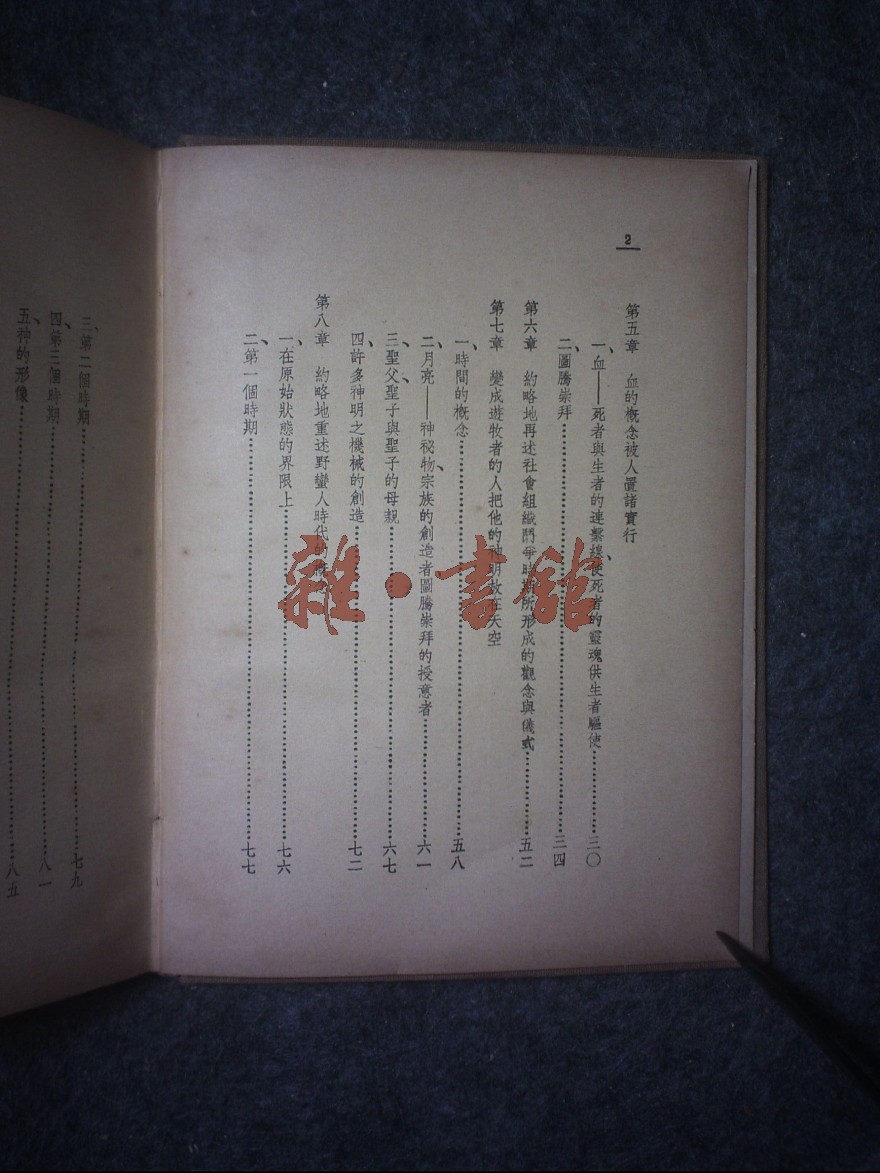 2
第五章　血的概念被人置諸實行
一、血——死者與生者的連繫線、使死者的靈魂供生者驅使……………三〇
二、圖騰崇拜……………三四
第六章　約略地再述社會組織鬥爭時期所形成的觀念與儀式……………五二
第七章　變成遊牧者的人把他的神明放在天空
一、時間的概念……………五八
二、月亮——神祕物、宗族的創造者圖騰崇拜的授意者……………六一
三、聖父、聖子與聖子的母親……………六七
四、許多神明之機械的創造……………七二
第八章　約略地重述野蠻人時代的
一、在原始狀態的界限上……………七六
二、第一個時期……………七七
三、第二個時期……………七九
四、第三個時期……………八一
五、神的形像……………八五
雜·書館